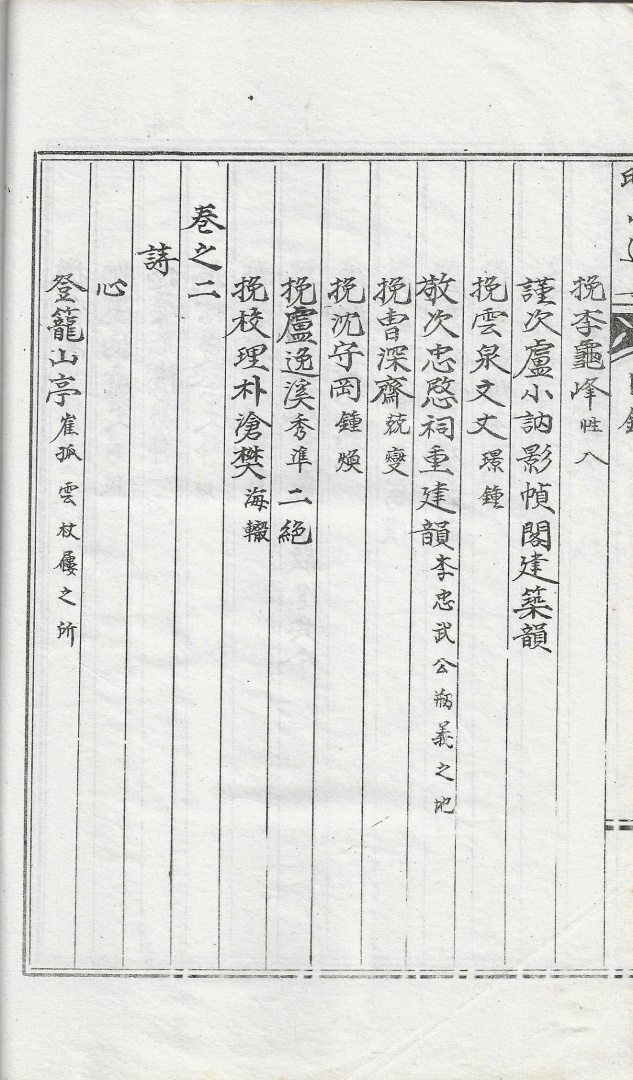 目錄
挽李龜峰性八
謹次盧小訥影幀閣建築韻
挽雲泉文丈璟鍾
敬次忠愍祠重建韻李忠武公刱義之地
挽曺深齋兢燮
挽沈守岡鍾煥
挽盧逸溪秀準二絕
挽校理朴滄樊海轍
卷之二
詩
心
登籠山亭崔孤雲杖屨之所